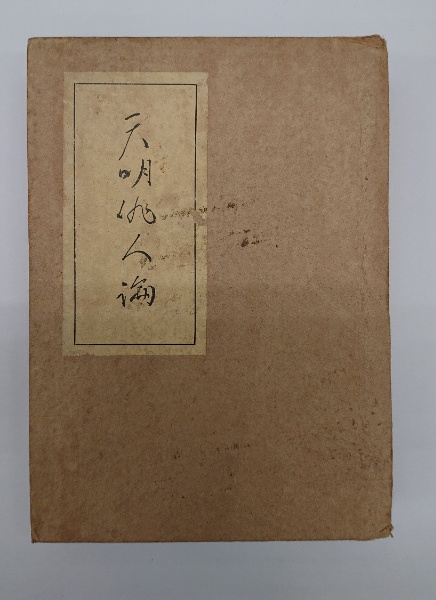 天明俳人論